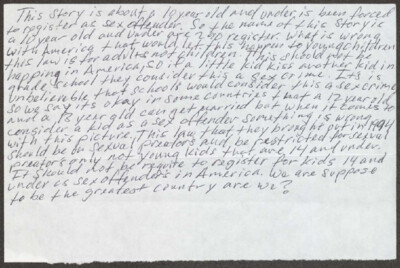 This story is about a 10 year old and under is been forced
to register as sex offender. So the moral of this story is
a 10 year old and under are to register. What is wrong
with America that would let this happen to young children
this law is for adults not children. This should not
happing in America, so if a little kid kiss another kid in
grade school they consider this a sex crime. Its is
unbelievable that schools would consider this a sex crime,
so we say its okay in some countries that a 12 year old
and a 13 year old can get married but when it comes to
consider a kid as a sex offender something is wrong
with this picture. This law that they brought out in 1994
should be on sexual preators and be restricted for sexual
preators only not young kids that are 14 and under.
It should not be require to register for kids 14 and
under as sex offenders in America. We are suppose
to be the greatest country are we?